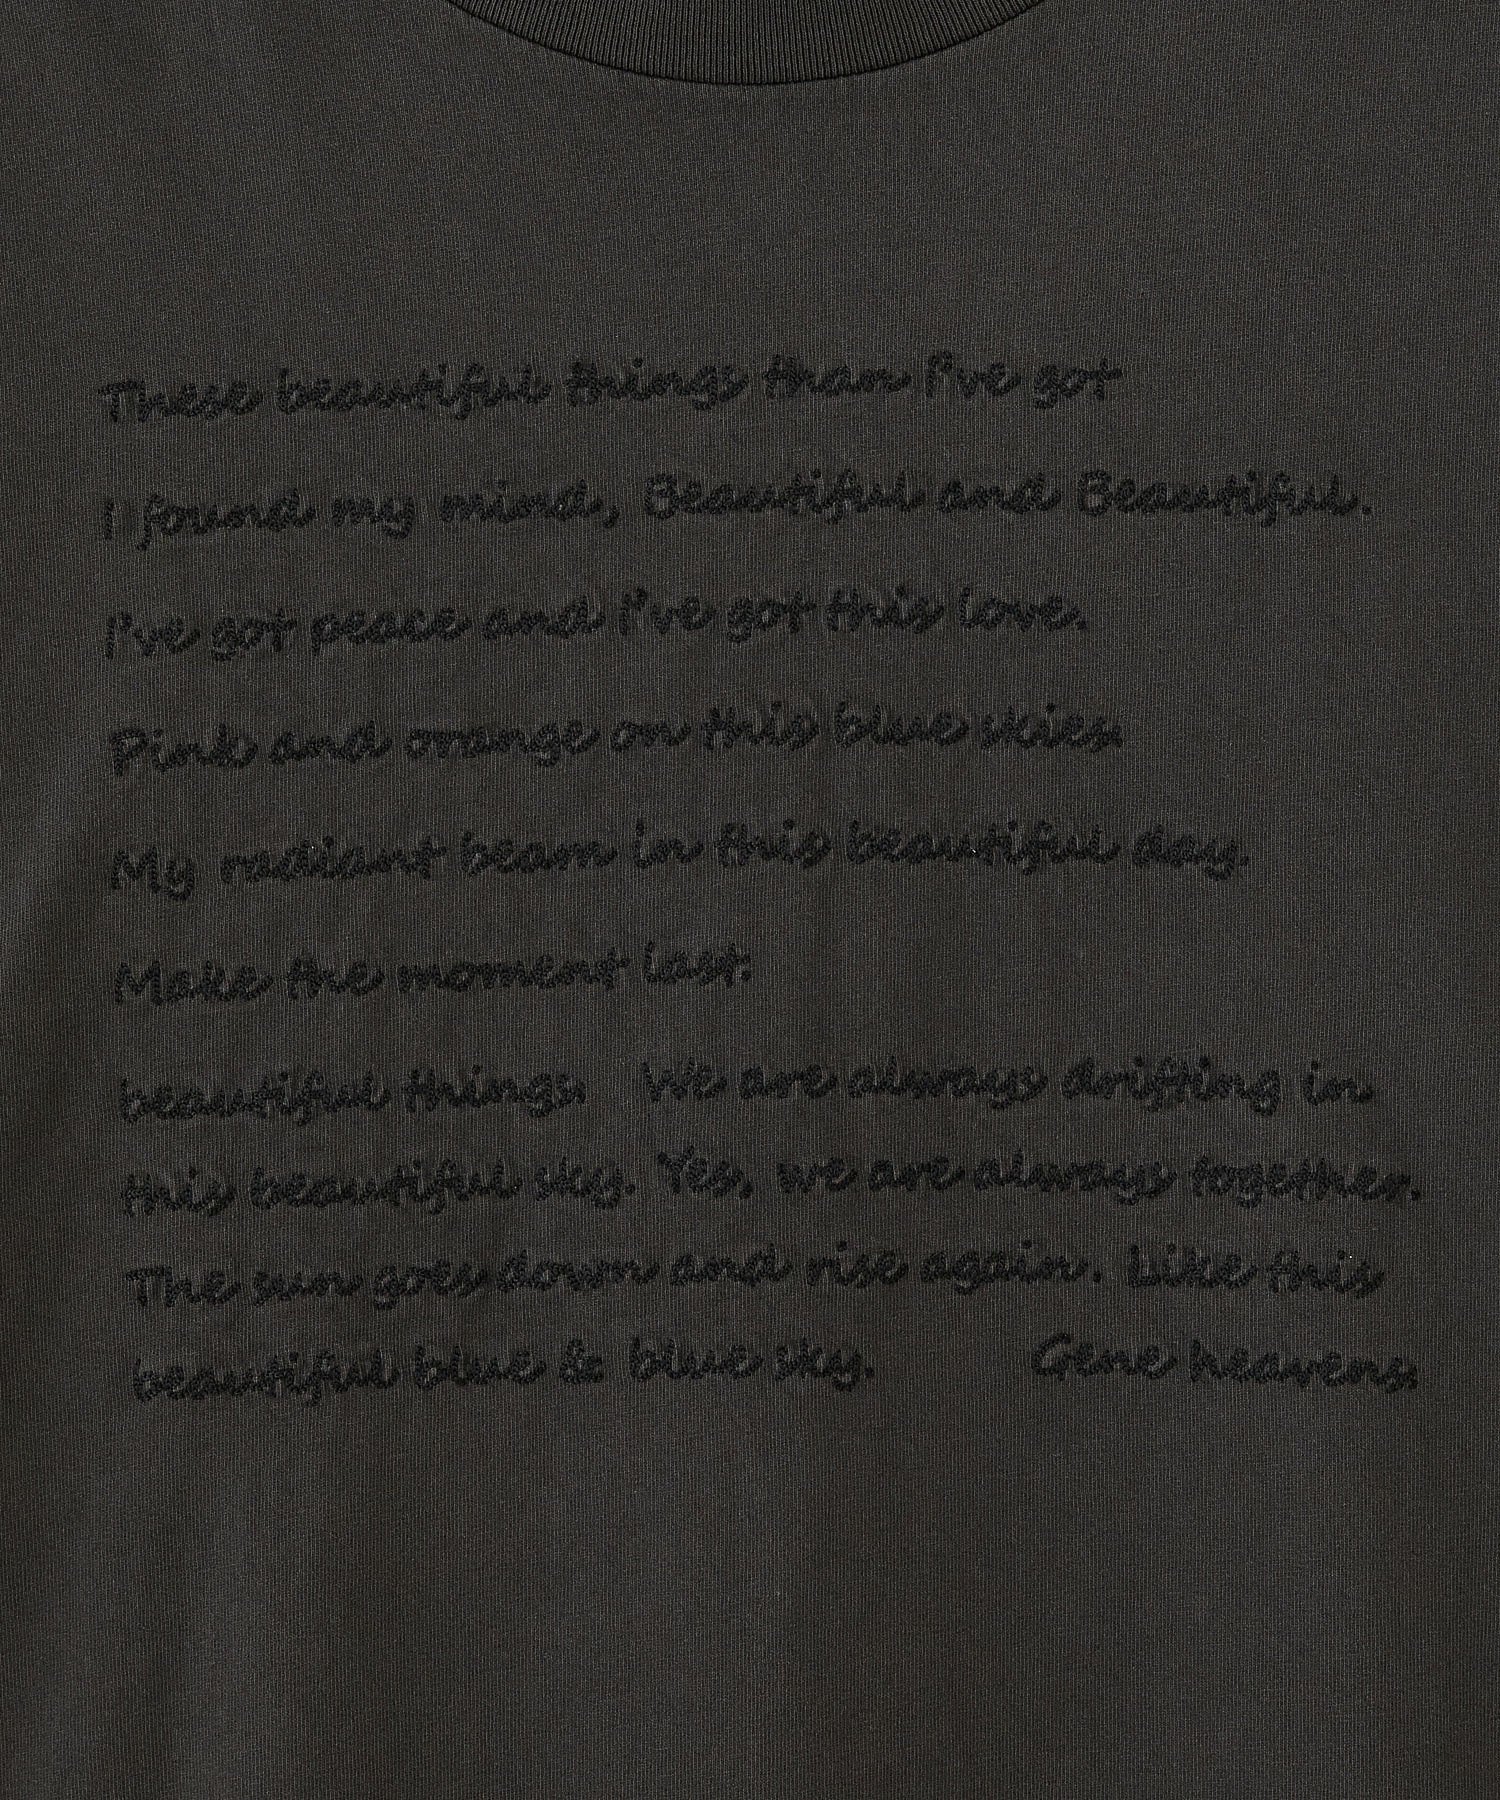 These beautiful things than I've got
I found my mind, Beautiful and Beautiful.
I've got peace and I've got this love.
Pink and orange on this blue skies.
My radiant beam in this beautiful day.
Make the moment last.
beautiful things. We are always drifting in
this beautiful sky. Yes, we are always together.
The sun goes down and rise again. Like this
beautiful blue & blue sky. Gene heavens.